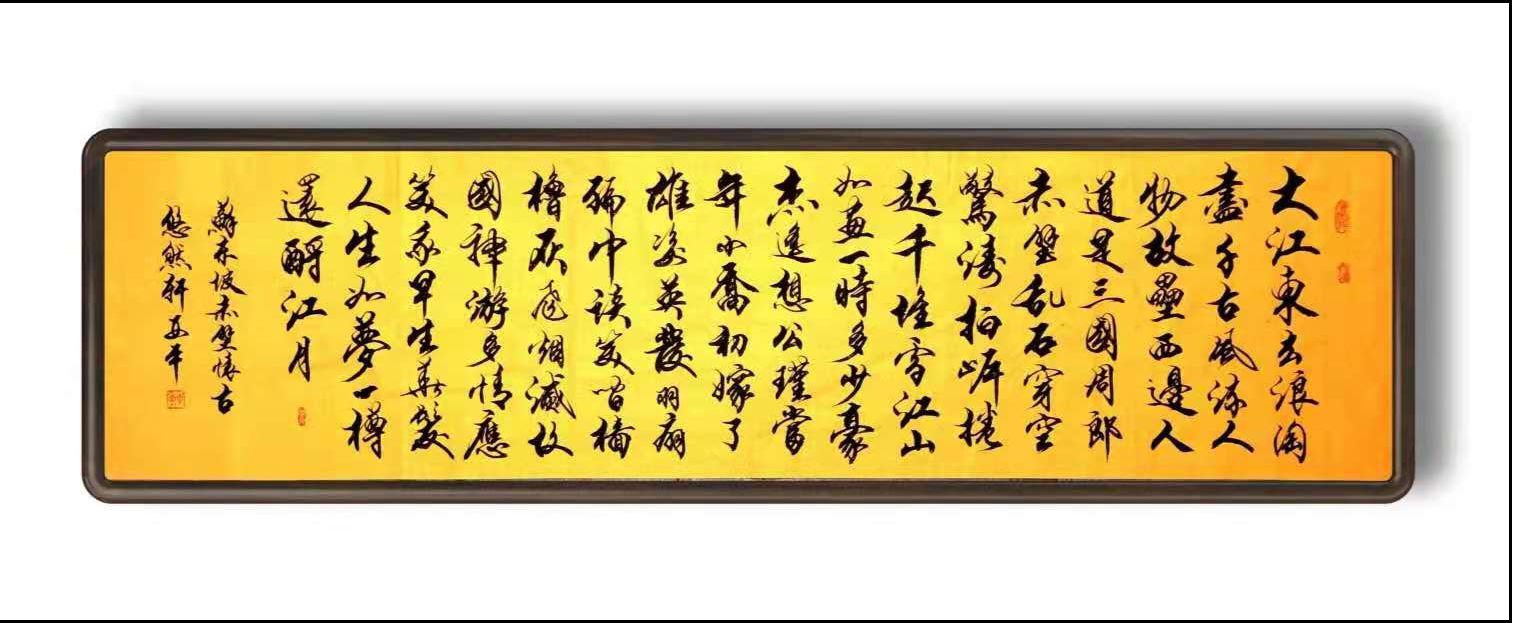 大江東去浪淘
盡千古風流人
物故壘西邊人
道是三國周郎
赤壁乱石穿空
驚濤拍岸捲
起千堆雪江山
如畫一時多少豪
杰遙想公瑾當
年小喬初嫁了
雄姿英發羽扇
綸巾談笑間檣
櫓灰飛烟滅故
國神游多情應
笑我早生華髮
人生如夢一樽
還酹江月
蘇東坡赤壁懷古
悠然軒